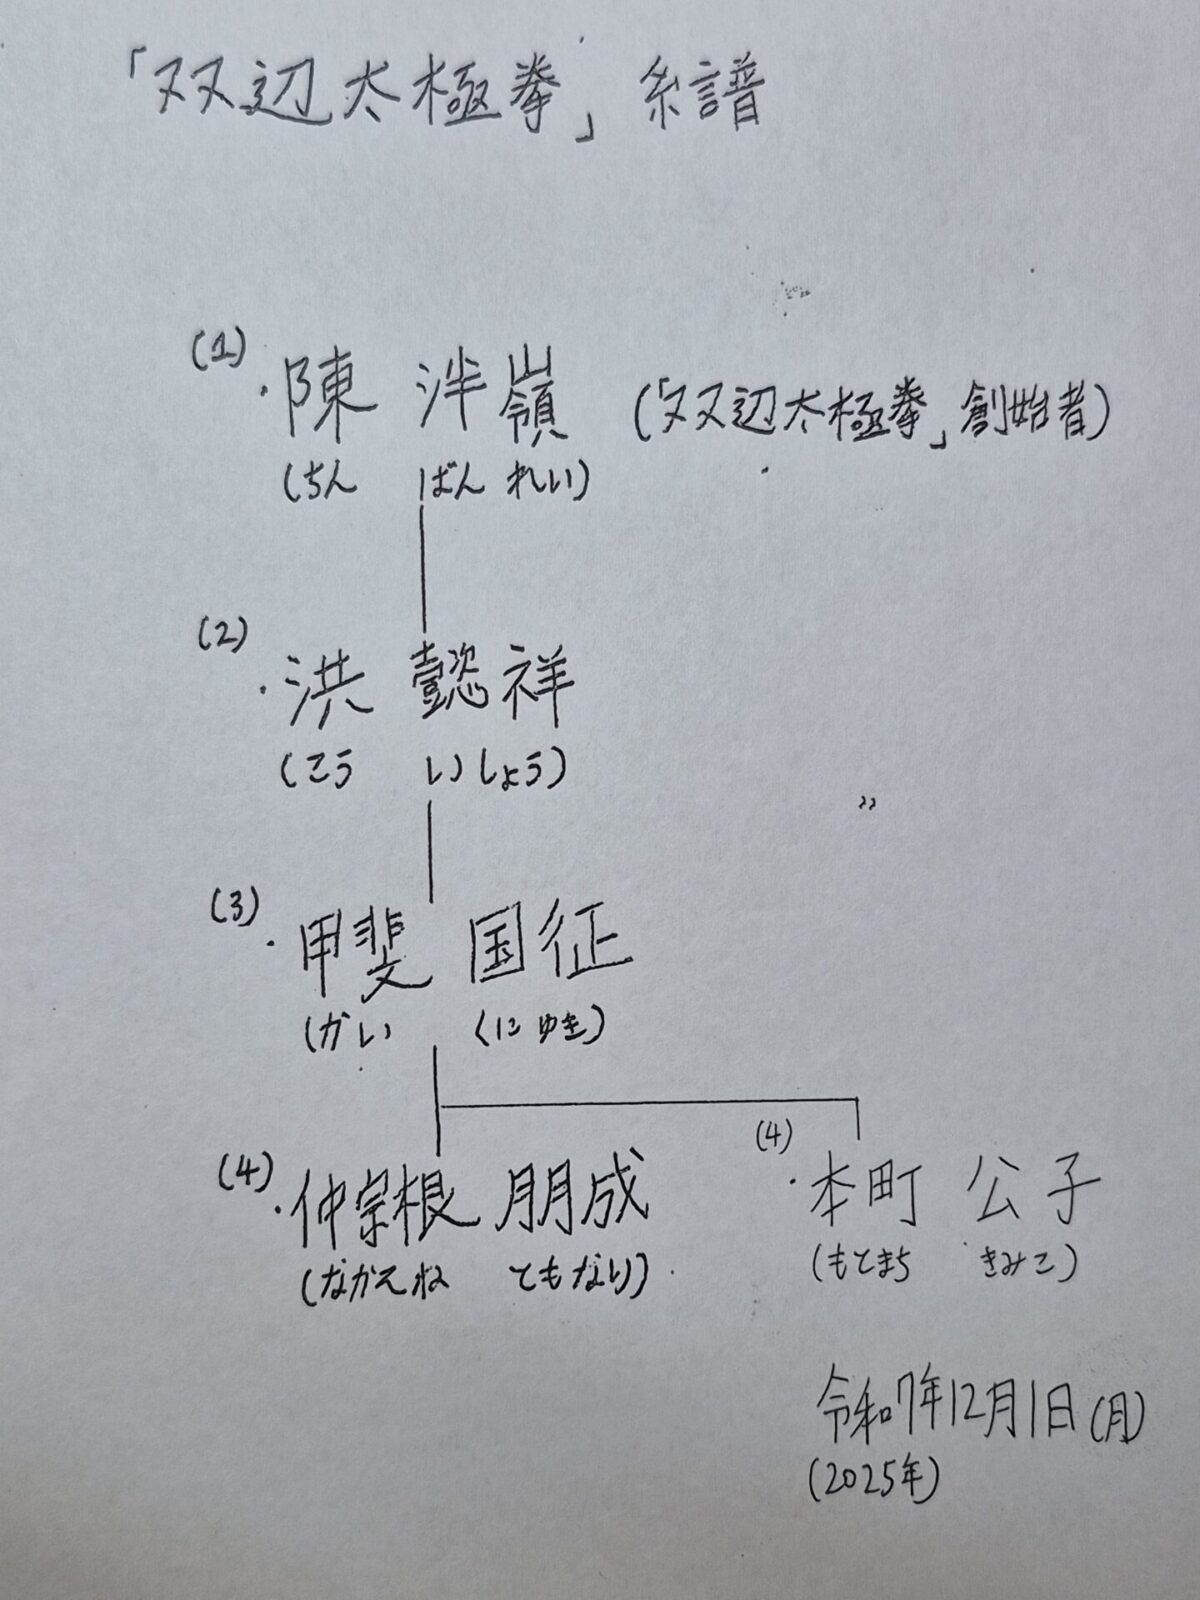 「双辺太極拳」系譜
(1)
・陳 泮嶺 (「双辺太極拳」創始者)
(ちん ばんれい)
(2)
・洪 懿祥
(こう いしょう)
(3)
・甲斐 国征
(かい くにゆき)
(4)・仲宗根 朋成
(なかそね ともなり)
(4)
・本町 公子
(もとまち きみこ)
令和7年12月1日(月)
(2025年)